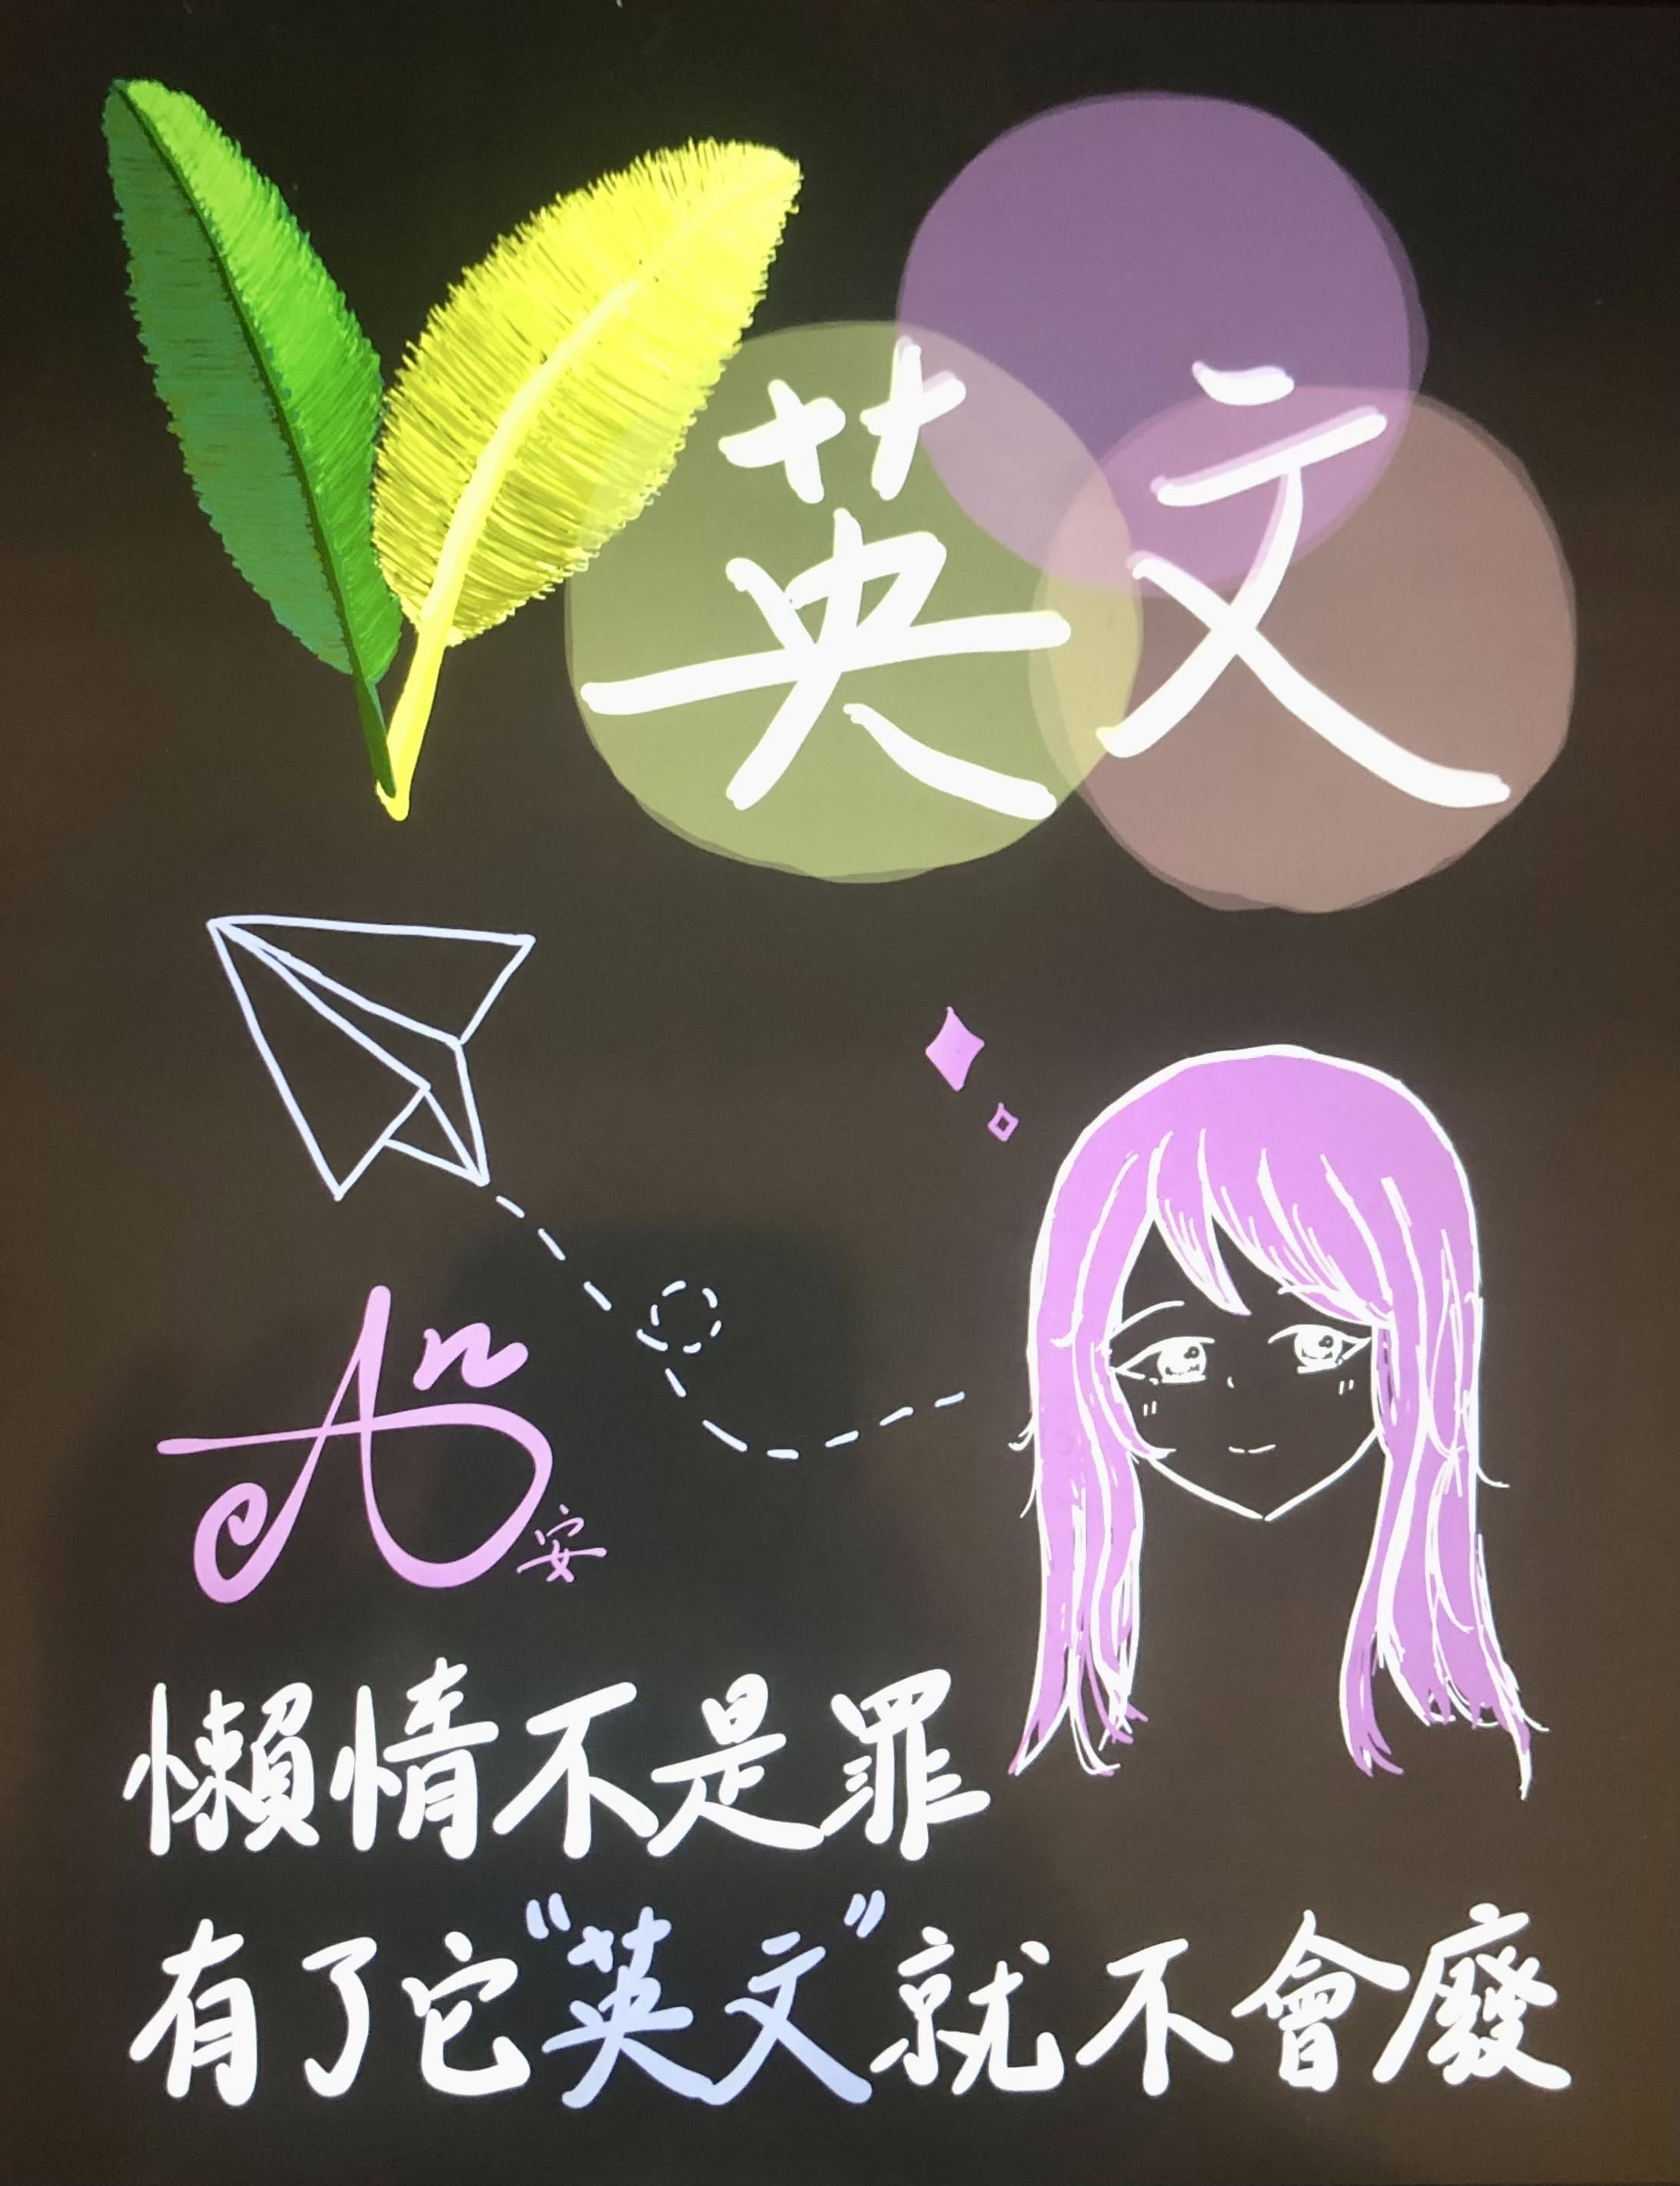 英文
An
安
懶惰不是罪
有了它“英文”就不會廢